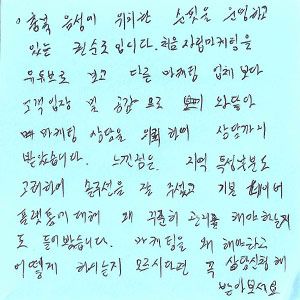 충북 음성에 위치한 운영하고
있는 권순호 입니다. 처음 자립마케팅을
유튜브로 보고 다른 마케팅 업체 보다
고객입장 및 공감 으로 와닿아
마케팅 상담을 의뢰 하여 상담까지
받았습니다. 느낀점은. 지역 특성부분도
고려하여 솔루션을 잘 주셨고 기본
플랫폼에 대해 왜 꾸준히 관리를 해야 하는지
도 들어 봤습니다. 마케팅을 왜 해야하고
어떻게 하시는지 모르시다면 꼭 상담신청 해
받아보세요